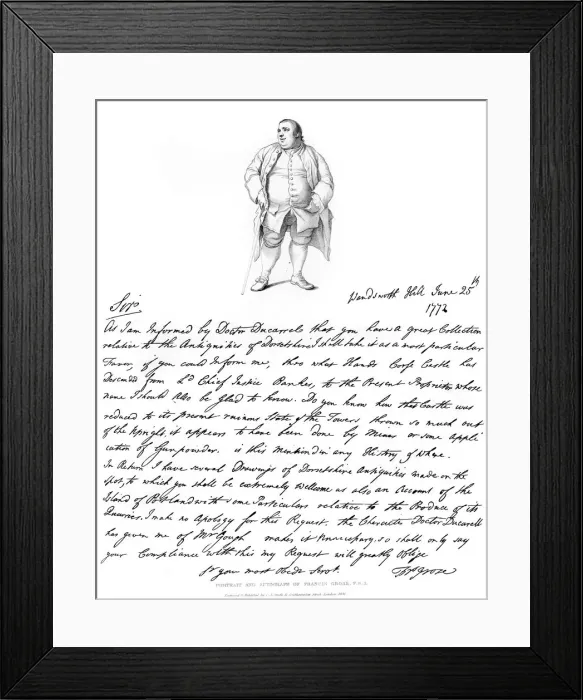 Wandsworth Hill June 25th
1772
Sir,
As I am Informed by Doctor Ducarrels that you have a great Collection
relative to the Antiquities of Dorsetshire I shall take it as a most particular
Favor, if you could Inform me, thro what Hands Corfe Castle has
Descended from Ld Chief Justice Bankes, to the Present Proprietor whose
name I should also be glad to know. Do you know how this Castle was
reduced to its present ruinous State of the Towers thrown so much out
of the upright, it appears to have been done by Mines or some appli
cation of Gunpowder. is this mentiond in any History of
In Return I have several Drawings of Dorsetshire Antiquities made on the
spot, to which you shall be extremely wellcome as also an Account of the
Island of Portland with some Particulars relative to the Produce of its
Quarries. I make no Apology for this Request. the Character Doctor Ducarell
has given me of Mr Gough makes it Unnecessary. so shall only say
your Compliance with this my Request will greatly Oblige
Sr your most Obedt Servt. Fras Grose
PORTRAIT AND AUTOGRAPH OF FRANCIS GROSE, F.R.S.